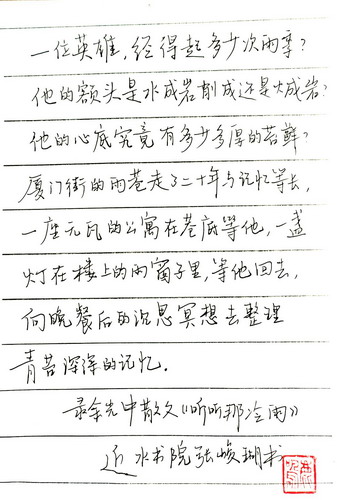 一位英雄，经得起多少次雨季？
他的额头是水成岩削成还是火成岩？
他的心底究竟有多少多厚的苔藓？
厦门街的雨巷走了二十年与记忆等长，
一座无瓦的公寓在巷底等他，一盏
灯在楼上的雨窗子里，等他回去，
向晚餐后的沉思冥想去整理
青苔深深的记忆。
录余光中散文《听听那冷雨》
近水书院张 瑚书